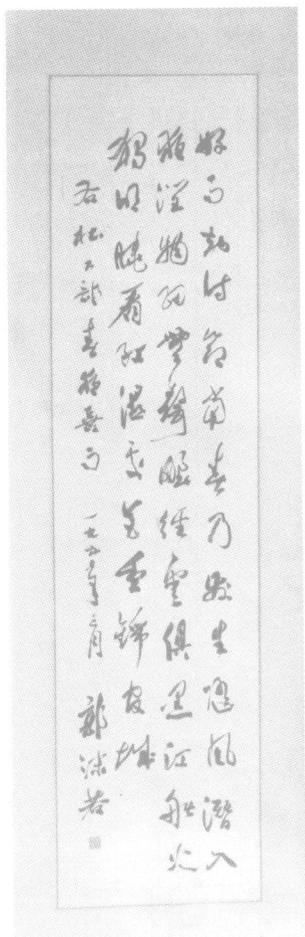 好雨知时节当春乃发生随风潜入
夜润物细无声野径云俱黑江船火
独明晓看红湿处花重锦官城
右杜工部春夜喜雨 一九六〇年三月 郭沫若